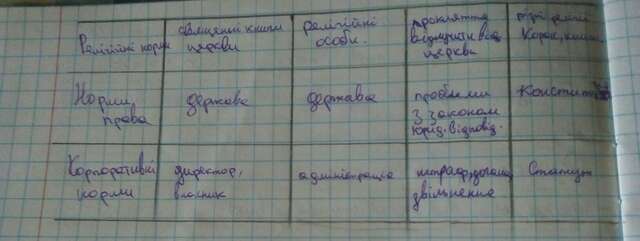 Релігійні норми
священні книги
церкви
релігійні
особи.
прокляття
відлучити від
церкви
Коран,
Норми
права
держава
держава
проблеми
з законом
юрид. відповід.
Конститу
Корпоративні
норми
директор,
власник
адміністрація
штраф, догана,
звільнення
Статут